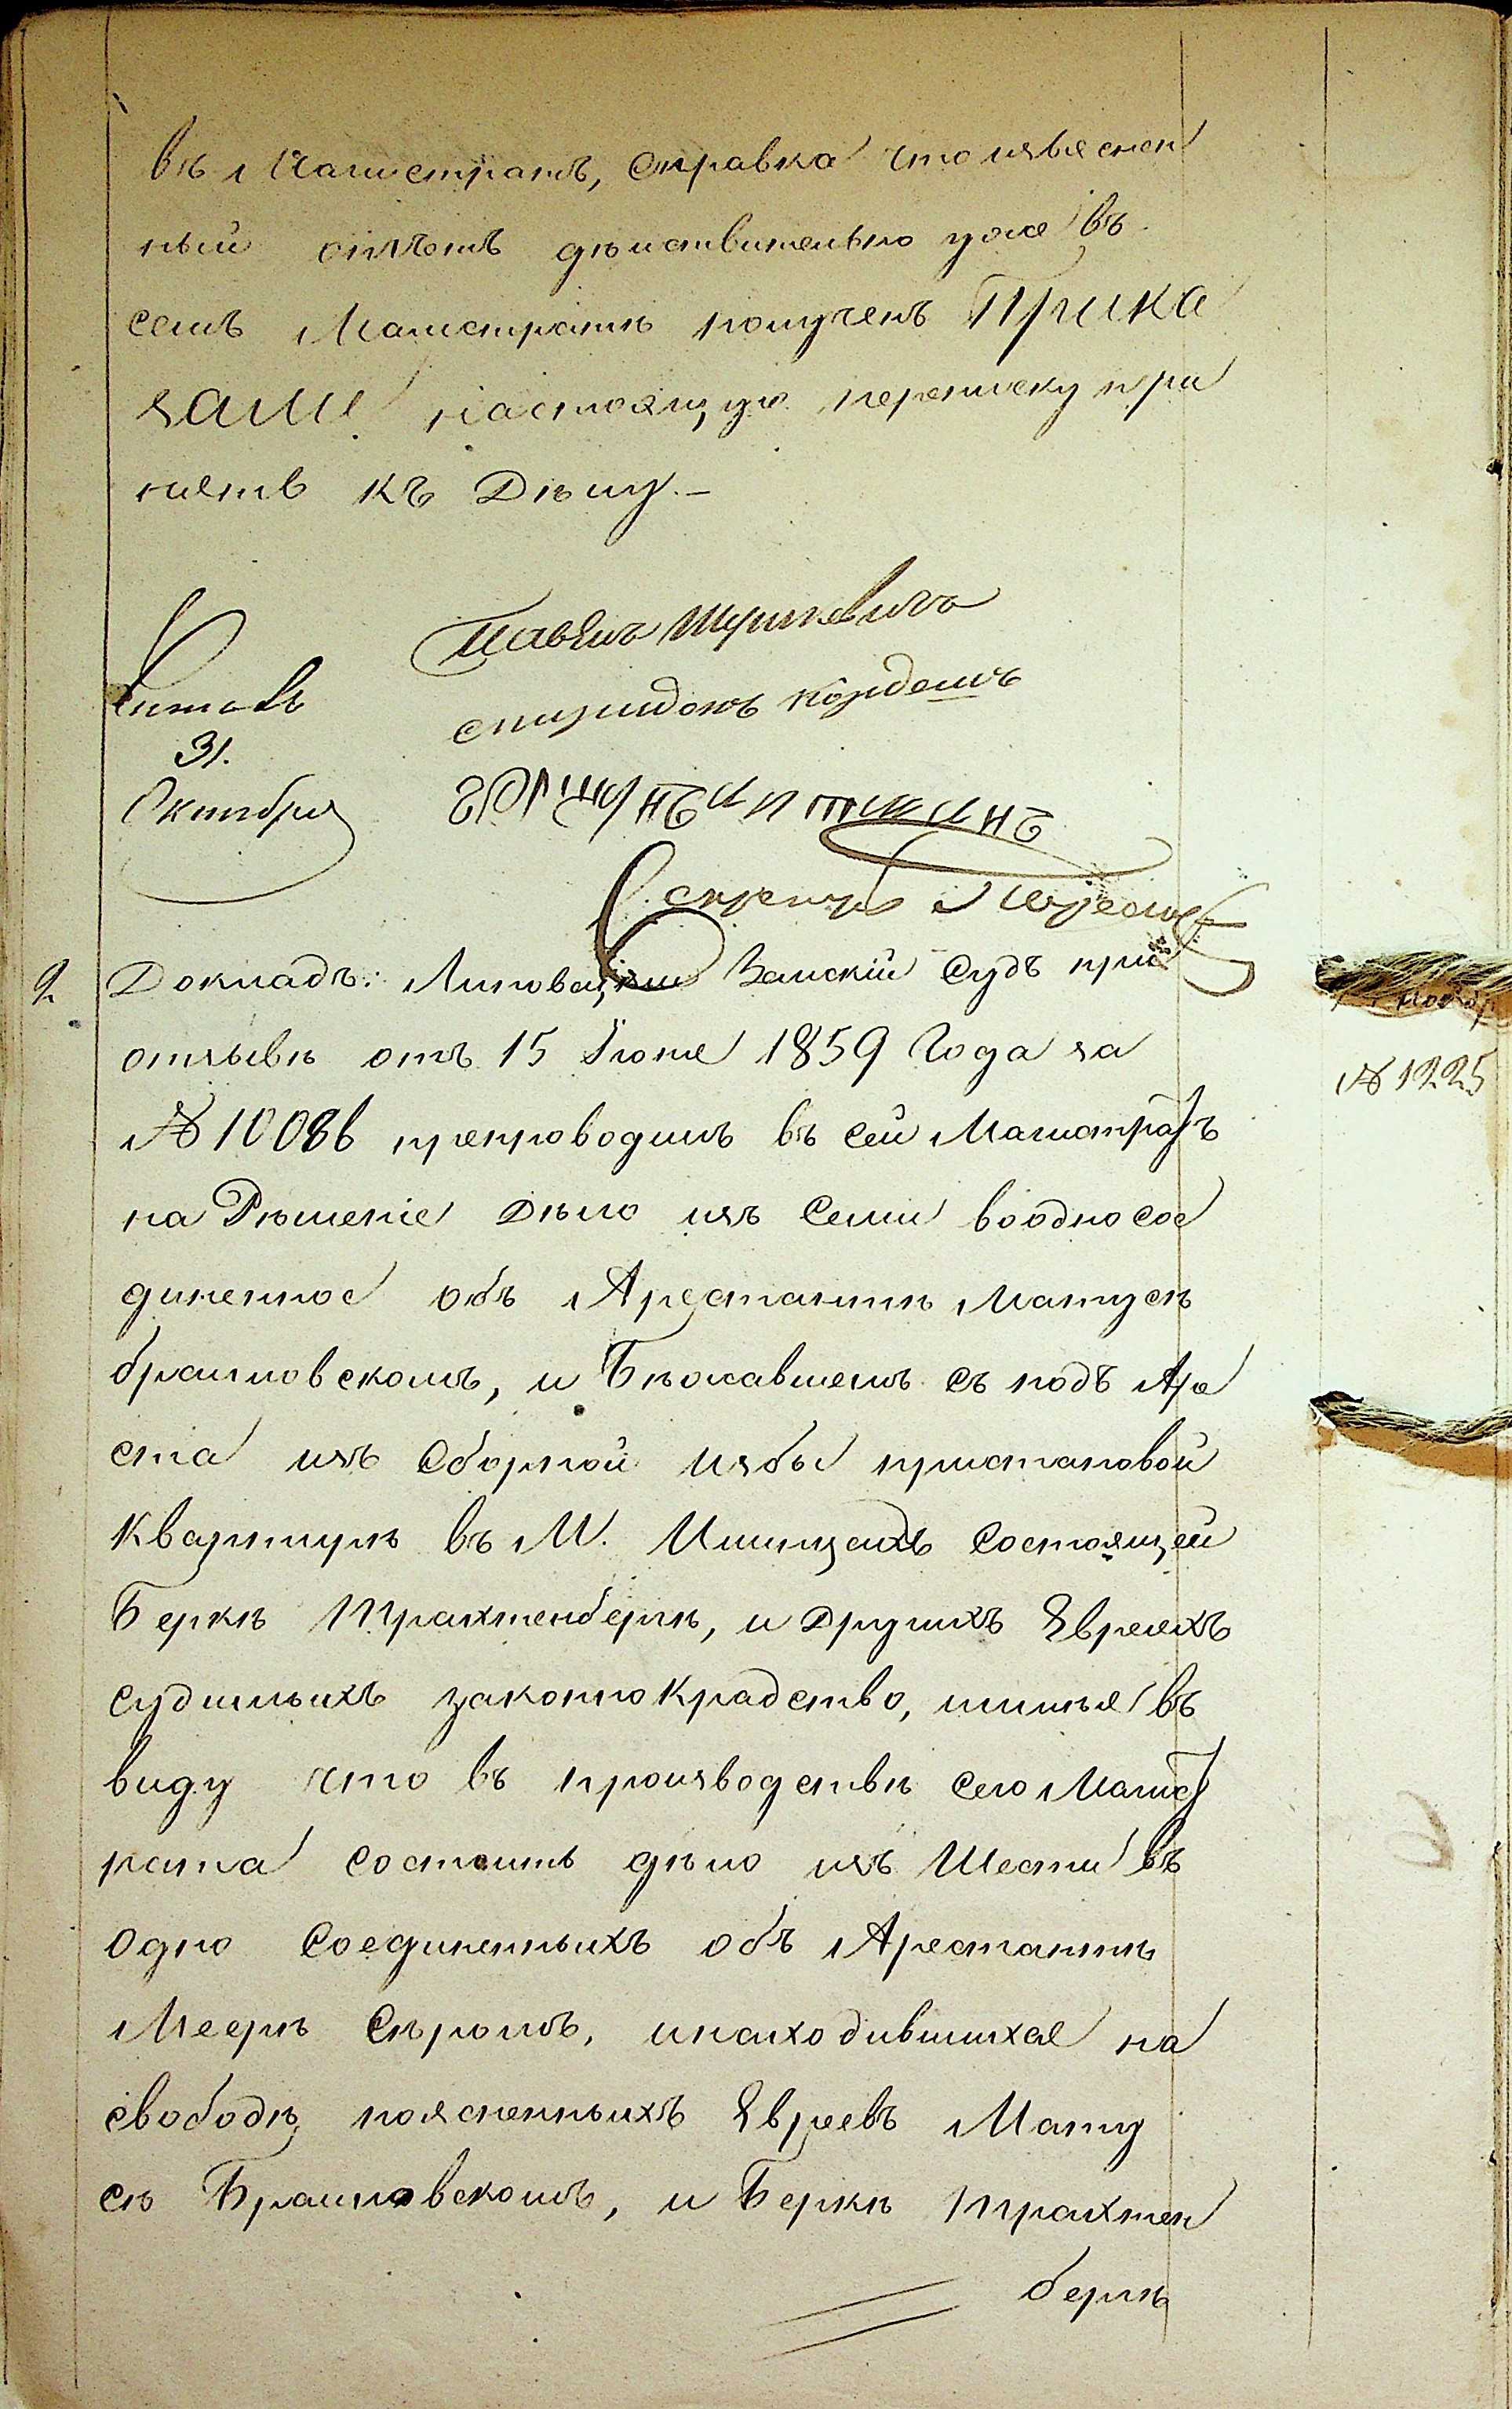 въ Магистратъ, справка что изъяснен
ный отвѣтъ дѣйствительно уже въ
семъ Магистратѣ полученъ Прика
зали настоящую переписку при
нять къ Дѣлу.–
Павелъ
Читалъ
спиридонъ
31.
Октября
Секретарь
9. Докладъ: Липовецкій Земскій Судъ при
отзывѣ отъ 15 Іюня 1859 Года за
№ 10086 препроводилъ въ сей Магистратъ
№ 1225
на Рѣшеніе Дѣло изъ Семи воодносое
диненное объ Арестантѣ Матусѣ
браиловскомъ, и Бѣжавшемъ съ подъ Аре
ста изъ Сборной избы пристановой
Квартирѣ въ М. Илинцахъ Состоящей
Беркѣ Трахтенбергѣ, и Другихъ Евреяхъ
судимыхъ законокрадство, имѣя въ
виду что въ производствѣ сего Магист
рата состоитъ дѣло изъ Шести въ
одно Соединенныхъ объ Арестантѣ
Меерѣ Сѣромъ, инаходившихся на
свободѣ поясненныхъ Евреевъ Мату
сѣ Браиловскомъ, и Беркѣ Трахтен
бергѣ